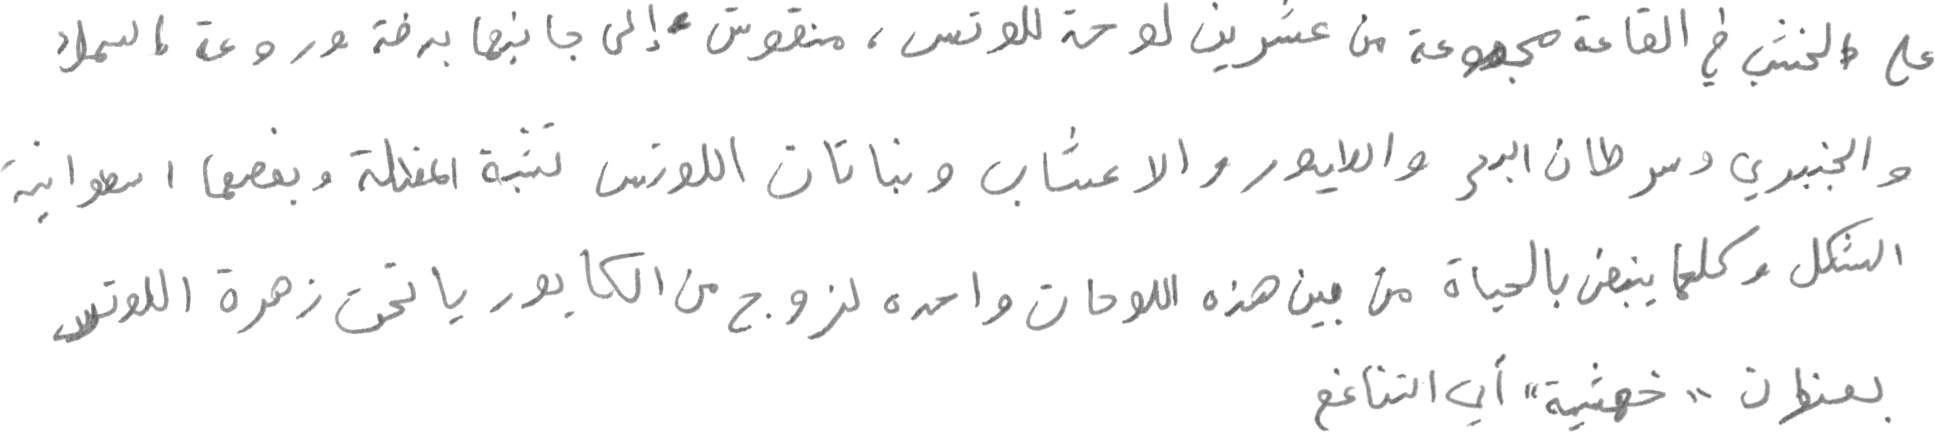 على الخشب في القاعة مجموعة من عشرين لوحة للوتس، منقوش إلى جانبها بدقة وروعة السملا
والجنبري وسرطان البحر والطيور والاعشاب ونباتات اللوتس تشبة المظلة وبعضها اسطوانية
الشكل وكلها ينبض بالحياة من بين هذه اللوحات واحده لزوج من الكابوريا تحت زهرة اللوتس
بعنوان "خهشية" أي التناغم